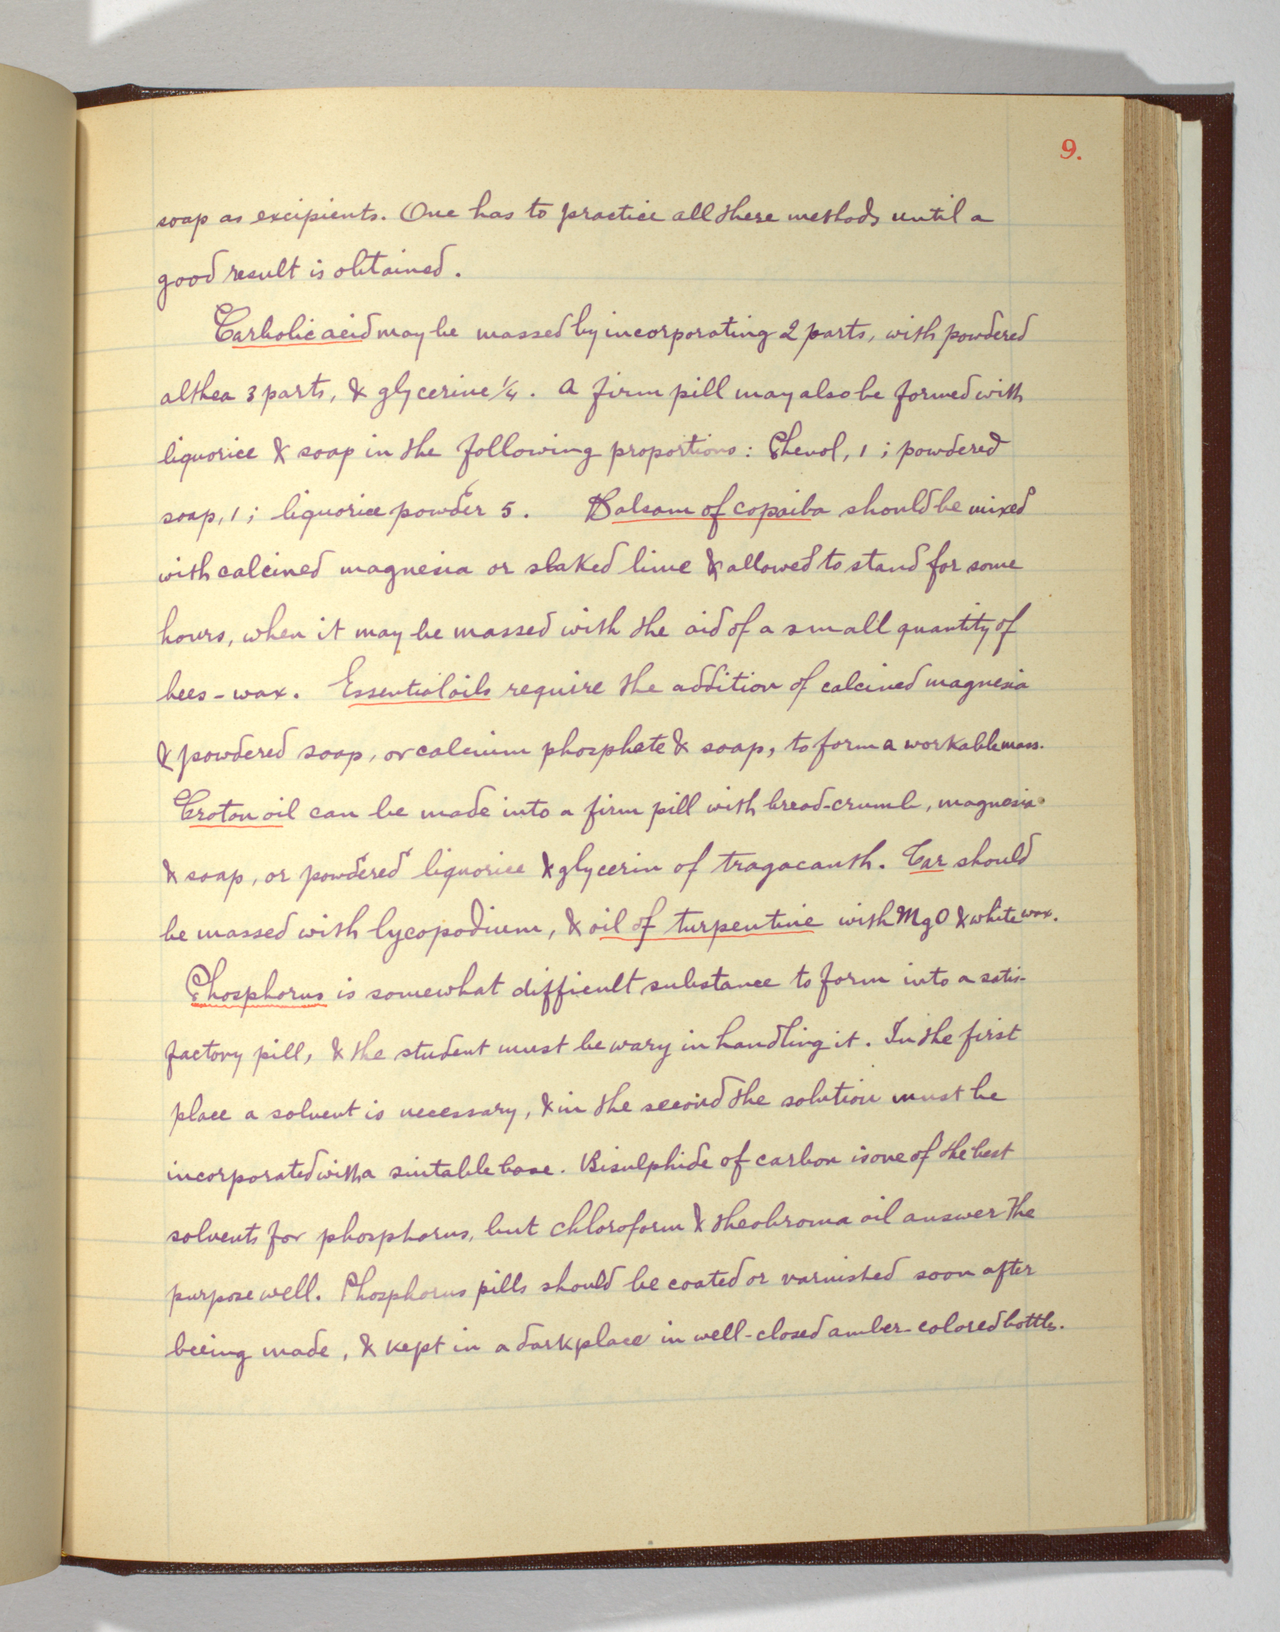 9.
soap as excipients. One has to practice all these methods until a
good result is obtained.
Carbolic acid may be massed by incorporating 2 parts, with powdered
althea 3 parts, & glycerine 1/4. A firm pill may also be formed with
liquorice & soap in the following proportions: Phenol, 1; powdered
soap, 1; liquorice powder 5. Balsam of copaiba should be mixed
with calcined magnesia or slaked lime & allowed to stand for some
hours, when it may be massed with the aid of a small quantity of
bees-wax. Essential oils require the addition of calcined magnesia
& powdered soap, or calcium phosphate & soap, to form a workable mass.
Croton oil can be made into a firm pill with bread-crumb, magnesia
& soap, or powdered liquorice & glycerin of tragacanth. Tar should
be massed with lycopodium, & oil of turpentine with MgO & white wax.
Phosphorus is somewhat difficult substance to form into a satis-
factory pill, & the student must be wary in handling it. In the first
place a solvent is necessary, & in the second the solution must be
incorporated with a suitable base. Bisulphide of carbon is one of the best
solvents for phosphorus, but chloroform & theobroma oil answer the
purpose well. Phosphorus pills should be coated or varnished soon after
beeing made, & kept in a dark place in well-closed amber-colored bottles.